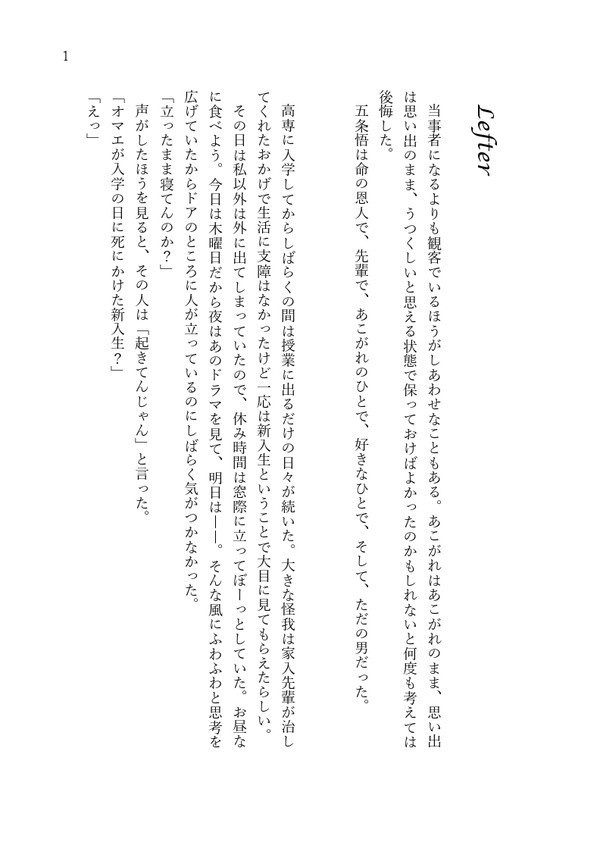 1
Lefter
当事者になるよりも観客でいるほうがしあわせなこともある。あこがれはあこがれのまま、思い出
は思い出のまま、うつくしいと思える状態で保っておけばよかったのかもしれないと何度も考えては
後悔した。
五条悟は命の恩人で、先輩で、あこがれのひとで、好きなひとで、そして、ただの男だった。
高専に入学してからしばらくの間は授業に出るだけの日々が続いた。大きな怪我は家入先輩が治し
てくれたおかげで生活に支障はなかったけど一応は新入生ということで大目に見てもらえたらしい。
その日は私以外は外に出てしまっていたので、休み時間は窓際に立ってぼーっとしていた。お昼な
に食べよう。今日は木曜日だから夜はあのドラマを見て、明日は——。そんな風にふわふわと思考を
広げていたからドアのところに人が立っているのにしばらく気がつかなかった。
「立ったまま寝てんのか？」
声がしたほうを見ると、その人は「起きてんじゃん」と言った。
「オマエが入学の日に死にかけた新入生？」
「えっ」